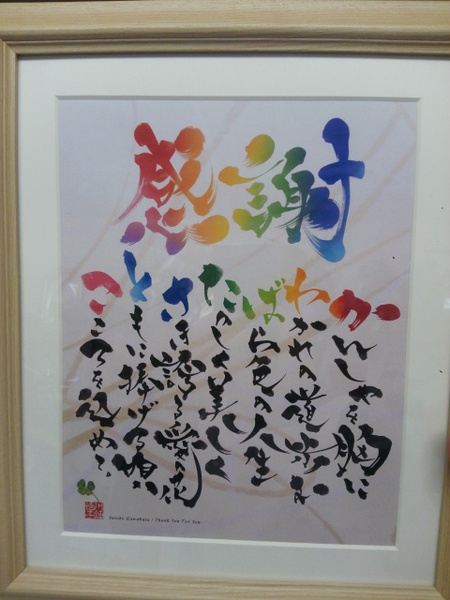 感謝
かんしゃを胸に
わかれの道歩む
ばら色の人生
たのしく美しく
さき誇る愛の花
ともに捧げる願
こころを込めて。
Kawabata / Thank You For You